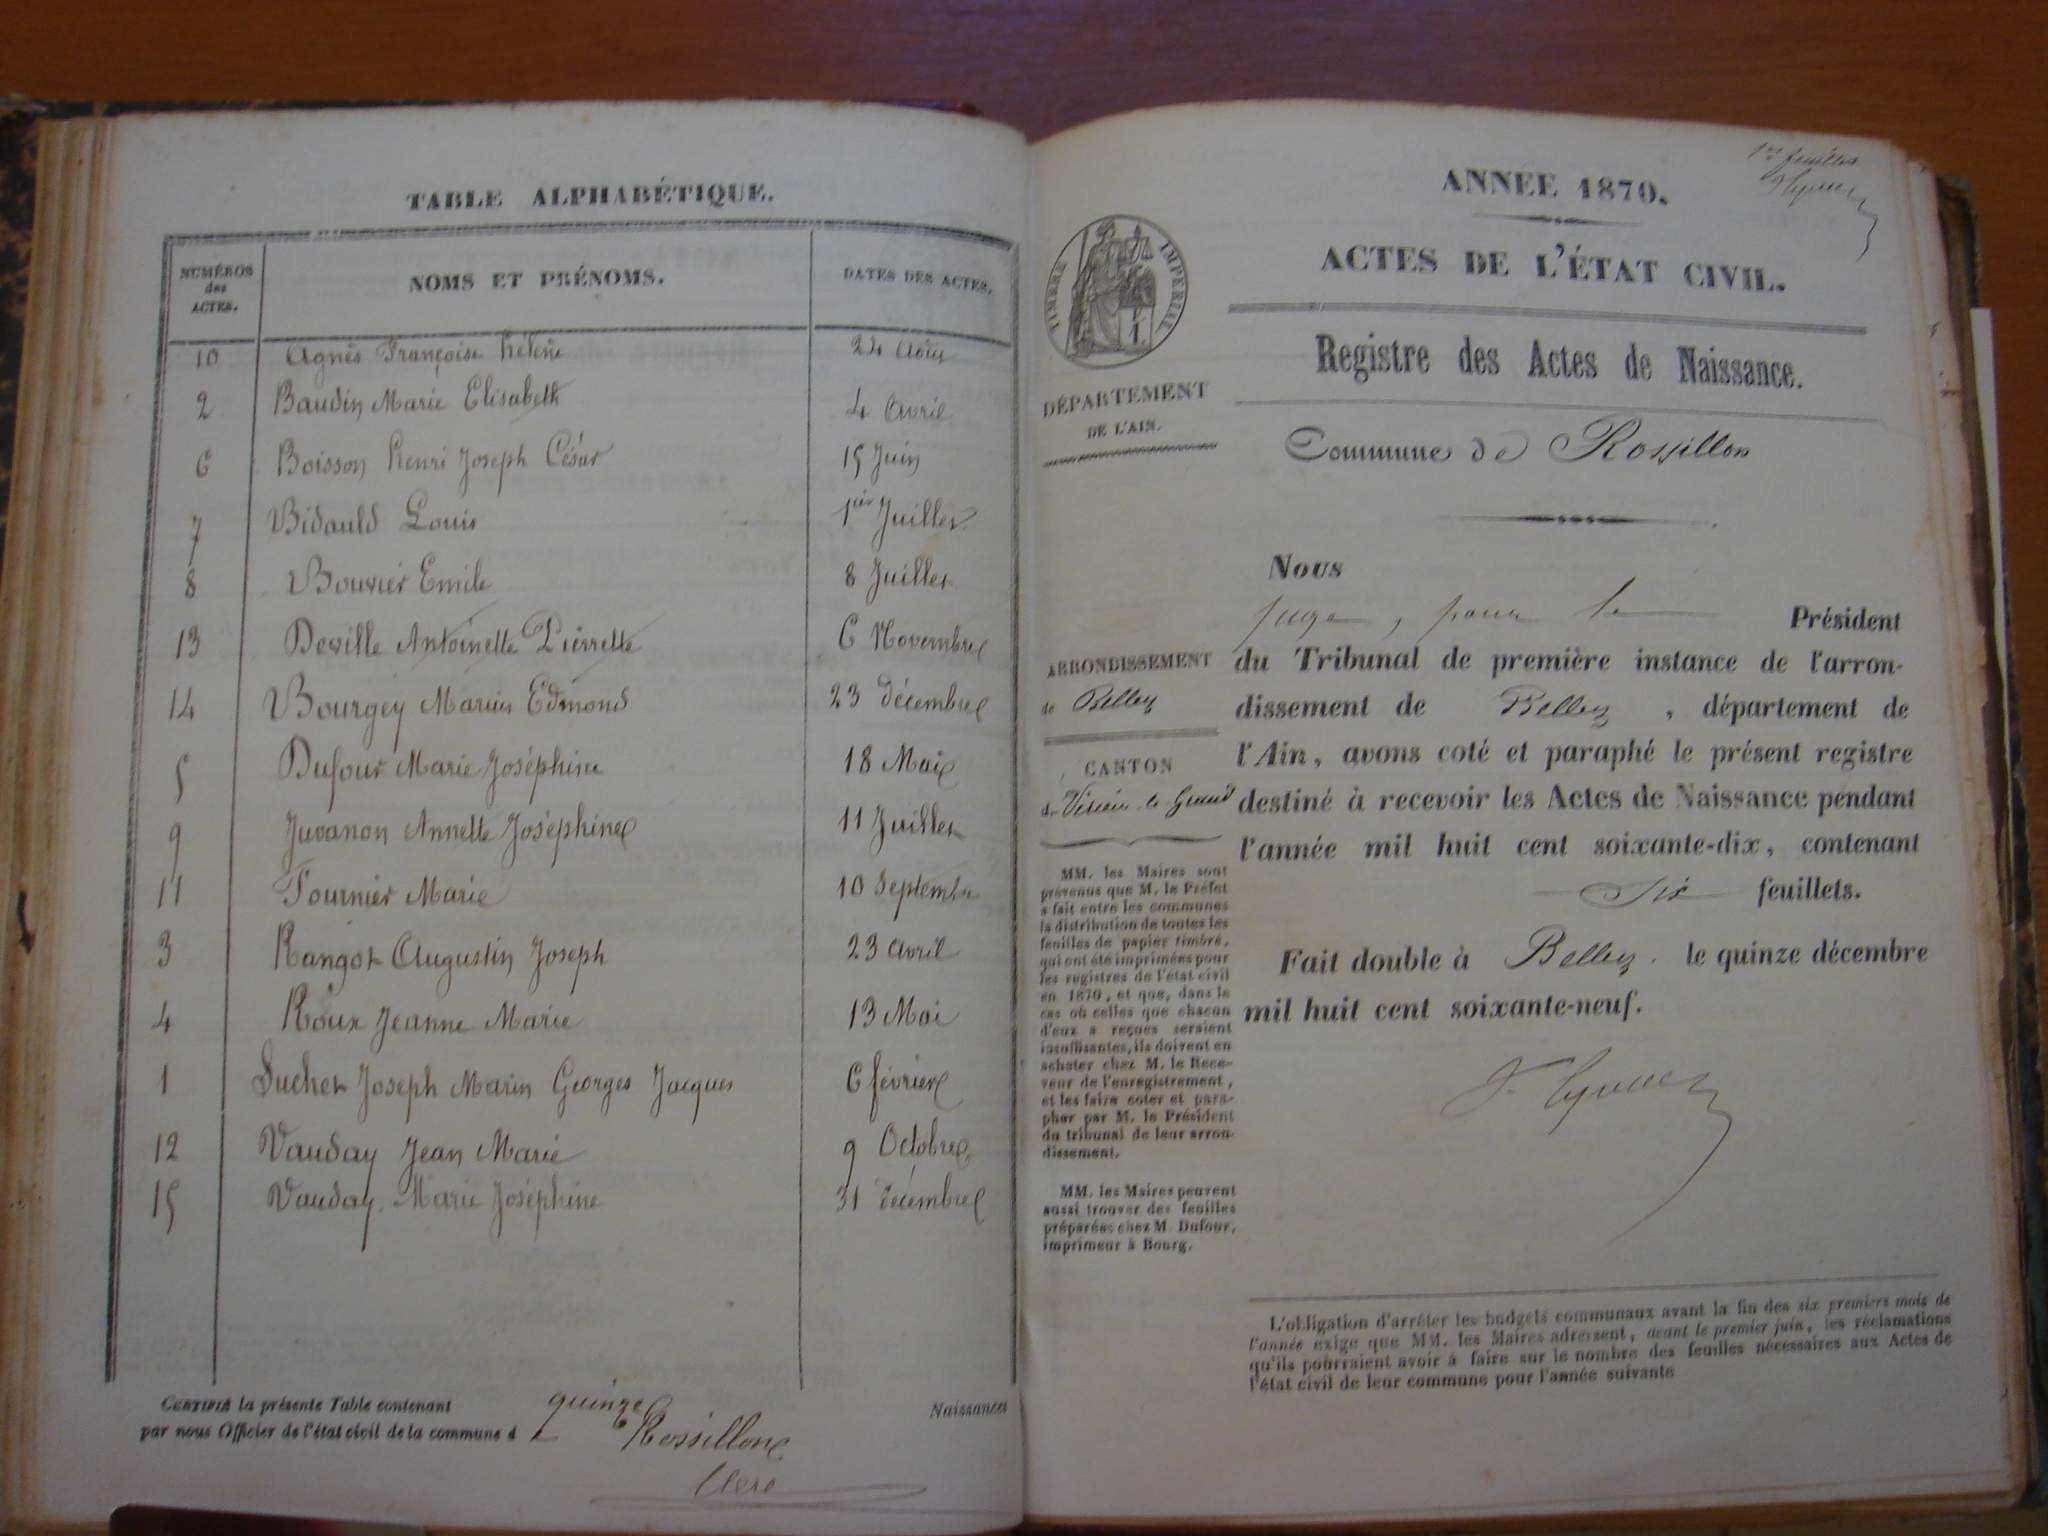 TABLE ALPHABÉTIQUE.
NUMÉROS des ACTES. NOMS ET PRÉNOMS. DATES DES ACTES.
10 Agnès Françoise Hélène 24 Août
2 Baudin Marie Elisabeth 4 Avril
6 Boisson Henri Joseph César 15 Juin
7 Bidauld Louis 1er Juillet
8 Bouvier Emile 8 Juillet
13 Deville Antoinette Pierrette 6 Novembre
14 Bourgey Marius Edmond 23 décembre
5 Dufour Marie Joséphine 18 Mai
9 Juvanon Annette Joséphine 11 Juillet
11 Fournier Marie 10 Septembre
3 Rangot Augustin Joseph 23 avril
4 Roux Jeanne Marie 13 Mai
1 Suchet Joseph Marin Georges Jacques 6 février
12 Vauday Jean Marie 9 Octobre
15 Vauday Marie Joséphine 31 décembre
CERTIFIÉ la présente Table contenant quinze Naissances
par nous Officier de l'état civil de la commune d Rossillon
Clerc
1er feuillet
ANNÉE 1870.
ACTES DE L'ÉTAT CIVIL.
Registre des Actes de Naissance.
Commune de Rossillon
TIMBRE IMPÉRIAL
DÉPARTEMENT
DE L'AIN.
ARRONDISSEMENT
de Belley
CANTON
de Virieu le Grand
MM. les Maires sont
prévenus que M. le Préfet
a fait entre les communes
la distribution de toutes les
feuilles de papier timbré,
qui ont été imprimées pour
les registres de l'état civil
en 1870, et que, dans le
cas où celles que chacun
d'eux a reçues seraient
insuffisantes, ils doivent en
acheter chez M. le Rece-
veur de l'enregistrement,
et les faire coter et para-
pher par M. le Président
du tribunal de leur arron-
dissement.
MM. les Maires peuvent
aussi trouver des feuilles
préparées chez M. Dufour,
imprimeur à Bourg.
Nous
juge, pour le Président
du Tribunal de première instance de l'arron-
dissement de Belley, département de
l'Ain, avons coté et paraphé le présent registre
destiné à recevoir les Actes de Naissance pendant
l'année mil huit cent soixante-dix, contenant
Six feuillets.
Fait double à Belley. le quinze décembre
mil huit cent soixante-neuf.
L'obligation d'arrêter les budgets communaux avant la fin des six premiers mois de
l'année exige que MM. les Maires adressent, avant le premier juin, les réclamations
qu'ils pourraient avoir à faire sur le nombre des feuilles nécessaires aux Actes de
l'état civil de leur commune pour l'année suivante